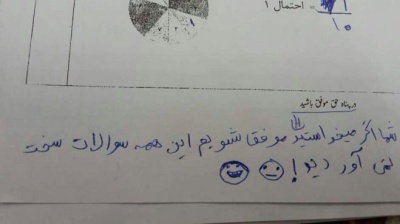 احتمال ۱
۱۰
در پناه حق موفق باشید
شما اگر میخواستید !!! موفق شویم این همه سوالات سخت
نمی آوردید!